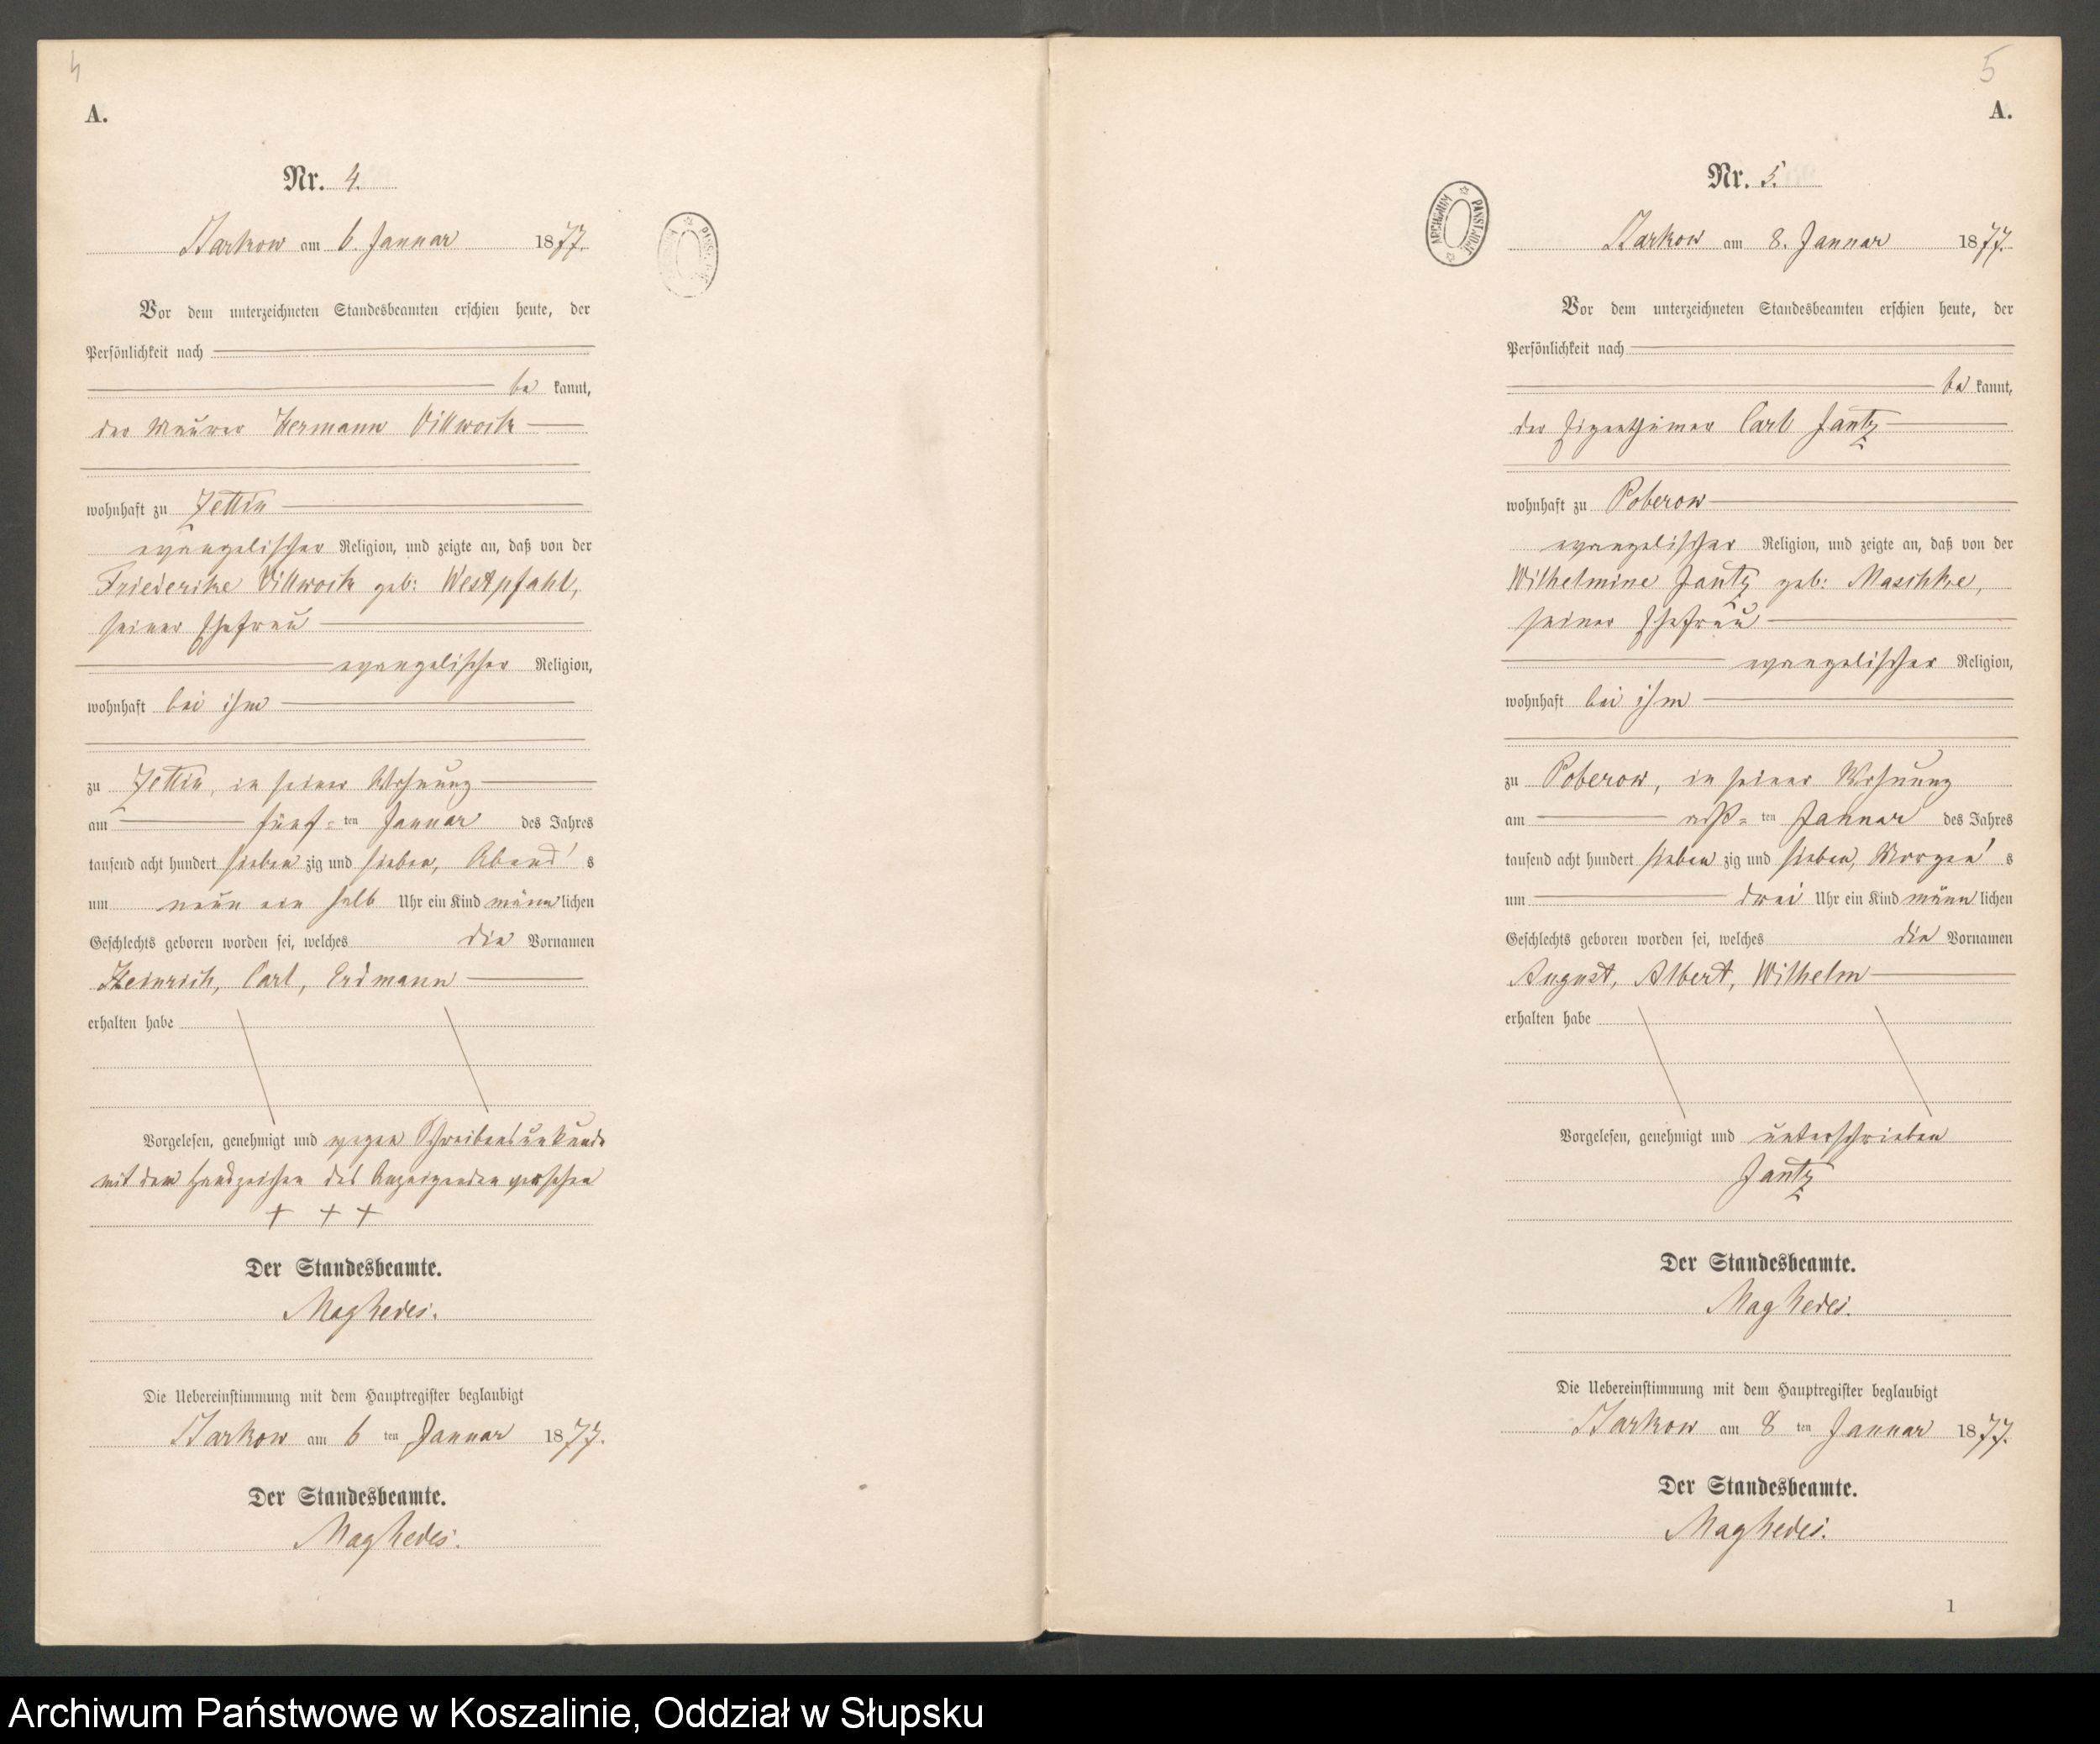 4
A.
Nr. 4.
Starkow am 6. Januar 1877.
Vor dem unterzeichneten Standesbeamten erschien heute, der
Persönlichkeit nach
be kannt,
der Maurer Hermann Villwock
wohnhaft zu Zettin
evangelischer Religion, und zeigte an, daß von der
Friederike Villwock geb: Westpfahl,
seiner Ehefrau
evangelischer Religion,
wohnhaft bei ihm
zu Zettin, in seiner Wohnung
am fünf-ten Januar des Jahres
tausend acht hundert sieben zig und sieben, Abend's
um neun ein halb Uhr ein Kind männlichen
Geschlechts geboren worden sei, welches die Vornamen
Heinrich, Carl, Erdmann
erhalten habe
Vorgelesen, genehmigt und wegen Schreibensunkunde
mit dem Handzeichen des Anzeigenden versehen
+ + +
Der Standesbeamte.
Die Uebereinstimmung mit dem Hauptregister beglaubigt
Starkow am 6 ten Januar 1877.
Der Standesbeamte.
5
A.
Nr. 5.
ARCHIWUM PAŃSTWOWE
Starkow am 8. Januar 1877.
Vor dem unterzeichneten Standesbeamten erschien heute, der
Persönlichkeit nach
be kannt,
der Eigenthümer Carl Jantz
wohnhaft zu Poberow
evangelischer Religion, und zeigte an, daß von der
Wilhelmine Jantz geb: Maschke,
seiner Ehefrau
evangelischer Religion,
wohnhaft bei ihm
zu Poberow, in seiner Wohnung
am acht-ten Januar des Jahres
tausend acht hundert sieben zig und sieben, Morgen's
um drei Uhr ein Kind männlichen
Geschlechts geboren worden sei, welches die Vornamen
August, Albert, Wilhelm
erhalten habe
Vorgelesen, genehmigt und unterschrieben
Jantz
Der Standesbeamte.
Die Uebereinstimmung mit dem Hauptregister beglaubigt
Starkow am 8 ten Januar 1877.
Der Standesbeamte.
1
Archiwum Państwowe w Koszalinie, Oddział w Słupsku